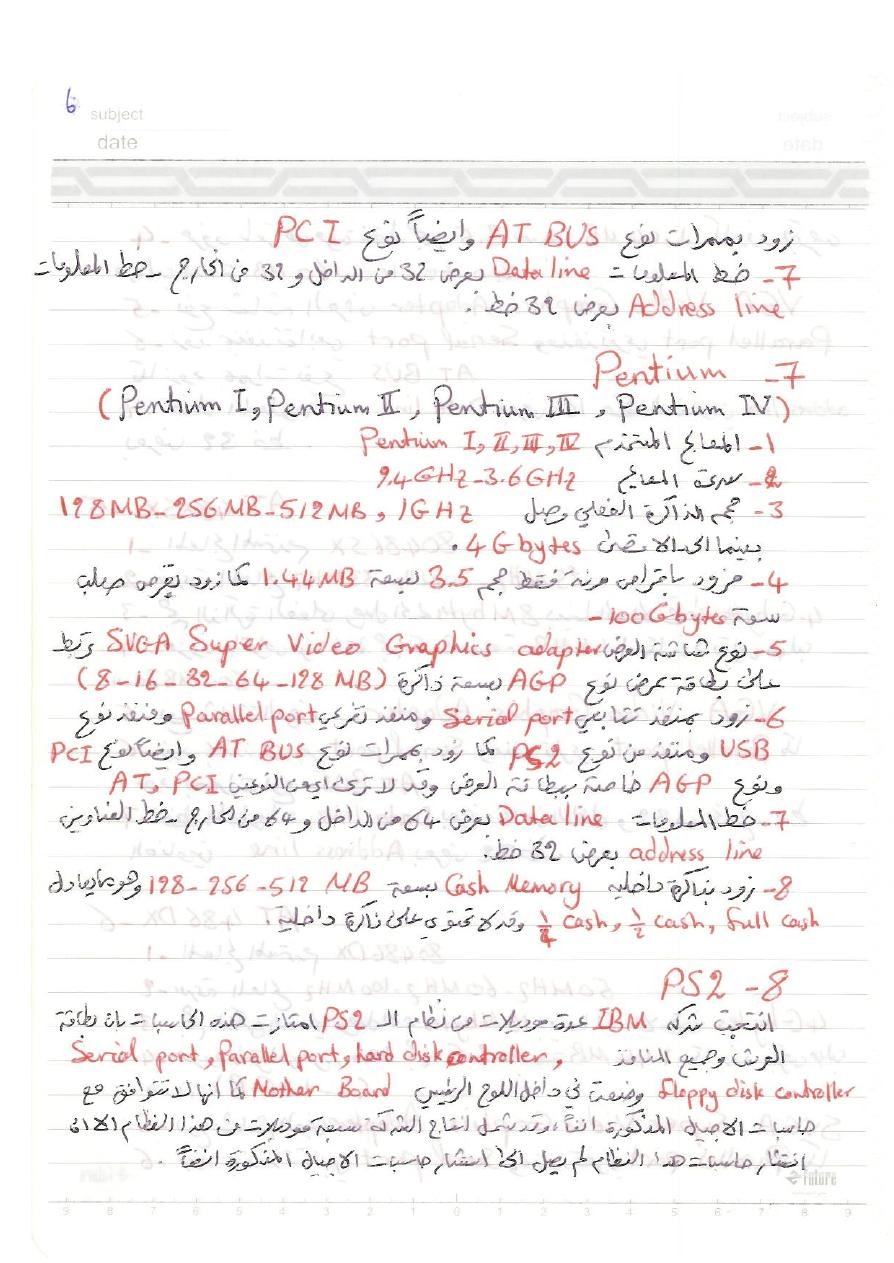 6
subject
date
زود بممرات نوع AT BUS وايضاً نوع PCI
7- خط المعلومات Data line بعرض 32 من الداخل و 32 من الخارج - خط المعلومات
Address line بعرض 32 خط .
7- Pentium
(Pentium I, Pentium II , Pentium III , Pentium IV)
1- المعالج المستخدم Pentium I, II, III, IV
2- سرعة المعالج 9.4GHz-3.6GHz
3- حجم الذاكرة الفعلي وصل 128MB-256MB-512MB, 1GHz
بينما الحد الاقصى 4Gbytes .
4- مزود باقراص مرنة فقط حجم 3.5 بسعة 1.44MB كما زود بقرص صلب
سعة 100Gbytes-
5- نوع شاشة العرض SVGA Super Video Graphics adapter تربط
على بطاقة عرض نوع AGP بسعة ذاكرة (8-16-32-64-128 MB)
6- زود بمنفذ تتابعي Serial port ومنفذ تفرعي Parallel port ومنفذ نوع
USB ومنفذ من نوع PS2 كما زود بممرات نوع AT BUS وايضاً نوع PCI
ونوع AGP خاصة ببطاقة العرض وقد لا ترى اي من النوعين AT, PCI
7- خط المعلومات Data line بعرض 64 من الداخل و 64 من الخارج - خط العناوين
address line بعرض 32 خط.
8- زود بذاكرة داخلية Cash Memory بسعة 128-256-512 MB وهو مايعادل
1/4 cash, 1/2 cash, full cash وقد لا تحتوي على ذاكرة داخلية .
8- PS2
انتجت شركة IBM عدة موديلات من نظام الـ PS2 امتازت هذه الحاسبات بان بطاقة
العرض وجميع المنافذ Serial port, parallel port, hard disk controller,
floppy disk controller وضعت في داخل اللوح الرئيسي Mother Board كما انها لا تتوافق مع
حاسبات الاجيال المذكورة انفاً وقد شمل انتاج الشركة سبعة موديلات من هذا النظام الا ان
انتشار حاسبات هذا النظام لم يصل الى انتشار حاسبات الاجيال المذكورة انفاً .
future
9 8 7 6 5 4 3 2 1 0 1 2 3 4 5 6 7 8 9